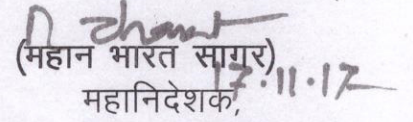 (महान भारत सागर)
17.11.17
महानिदेशक,